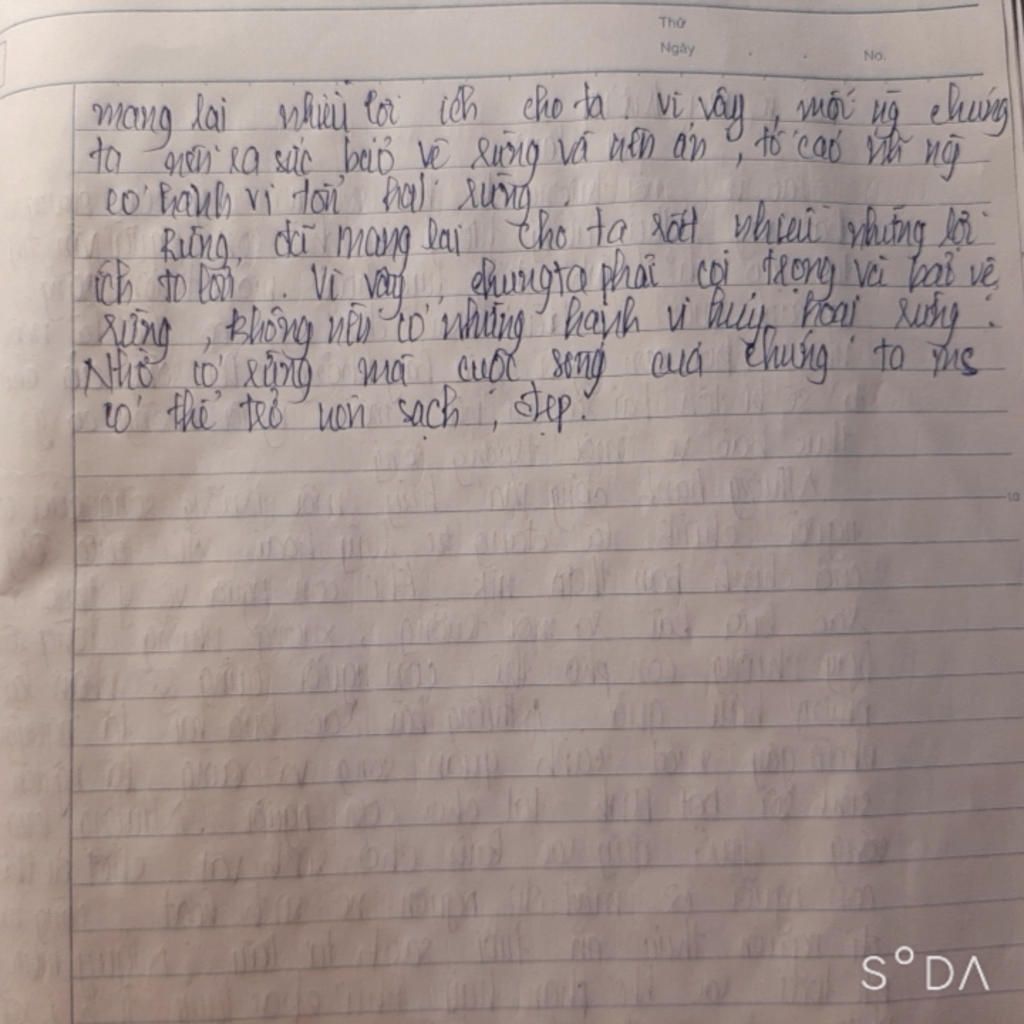 Thứ
Ngày . . No.
mang lại nhiều lợi ích cho ta. Vì vậy, mỗi ng chúng
ta nên ra sức bảo vệ rừng và nên án, tố cáo ng
có hành vi tổn hại rừng.
Rừng, đã mang lại cho ta rất nhiều những lợi
ích to lớn. Vì vậy, chúng ta phải coi trọng và bảo vệ
rừng, không nên có những hành vi hủy hoại rừng.
Nhờ có rừng mà cuộc sống quả chúng ta ms
có thể trở nên sạch, đẹp.
10
S°DA